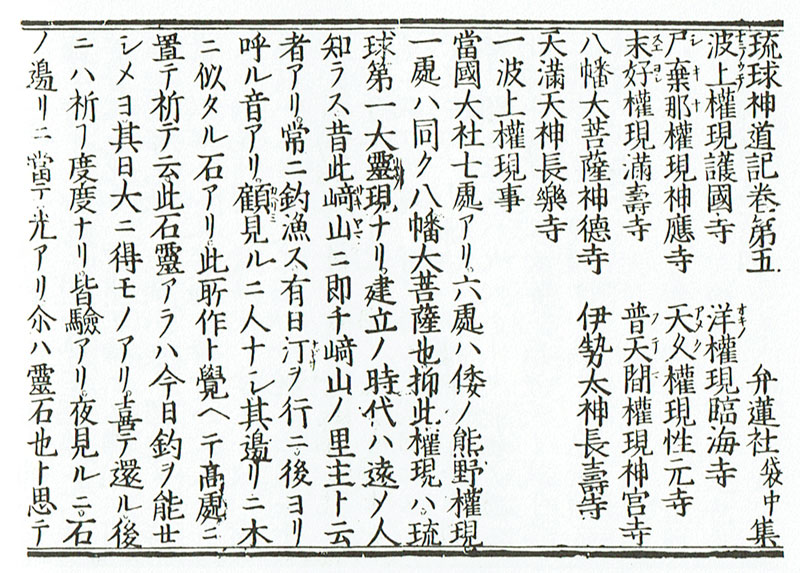 琉球神道記卷第五 弁蓮社袋中集
波上權現護國寺 洋權現臨海寺
尸棄那權現神應寺 天久權現性元寺
末好權現滿壽寺 普天間權現神宮寺
八幡大菩薩神德寺 伊勢太神長壽寺
天滿天神長樂寺
一波上權現事
當國大社七處アリ六處ハ倭ノ熊野權現
一處ハ同ク八幡大菩薩也抑此權現ハ琉
球第一大靈現ナリ建立ノ時代ハ遠メ人
知ラス昔此﨑山ニ即チ﨑山ノ里主ト云
者アリ常ニ釣漁ス有日汀ヲ行ニ後ヨリ
呼ル音アリ顧見ルニ人ナシ其邉リニ木
ニ似タル石アリ此所作ト覺ヘテ高處ニ
置テ祈テ云此石靈アラハ今日釣ヲ能せ
シメヨ其日大ニ得モノアリ喜テ還ル後
ニハ祈フ度度ナリ皆驗アリ夜見ルニ石
ノ邉リニ當テ光アリ尒ハ靈石也ト思テ